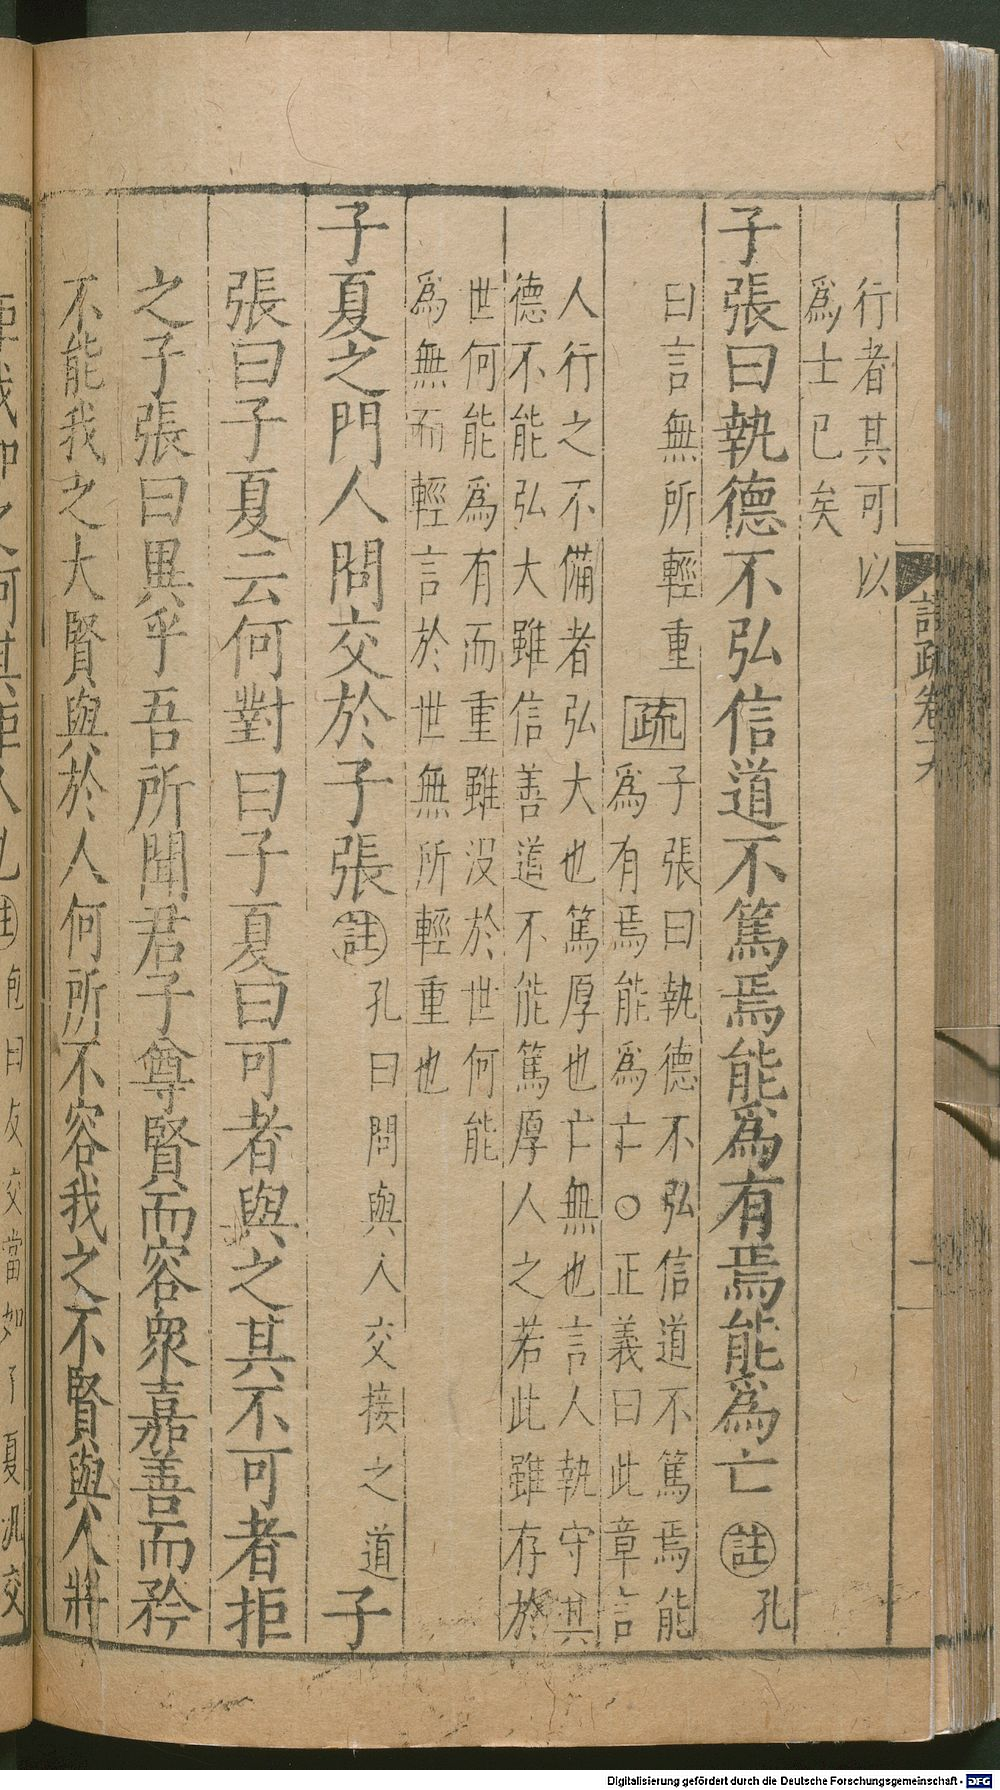 註疏卷
行者其可以
爲士已矣
子張曰執德不弘信道不篤焉能爲有焉能爲亡註孔
曰言無所輕重疏子張曰執德不弘信道不篤焉能
爲有焉能爲亡○正義曰此章言
人行之不備者弘大也篤厚也亡無也言人執守其
德不能弘大雖信善道不能篤厚人之若此雖存於
世何能爲有而重雖没於世何能
爲無而輕言於世無所輕重也
子夏之門人問交於子張註孔曰問與人交接之道子
張曰子夏云何對曰子夏曰可者與之其不可者拒
之子張曰異乎吾所聞君子尊賢而容衆嘉善而矜
不能我之大賢與於人何所不容我之不賢與人將
我如之何其拒人也註包曰友交當如子夏汎交
Digitalisierung gefördert durch die Deutsche Forschungsgemeinschaft - DFG